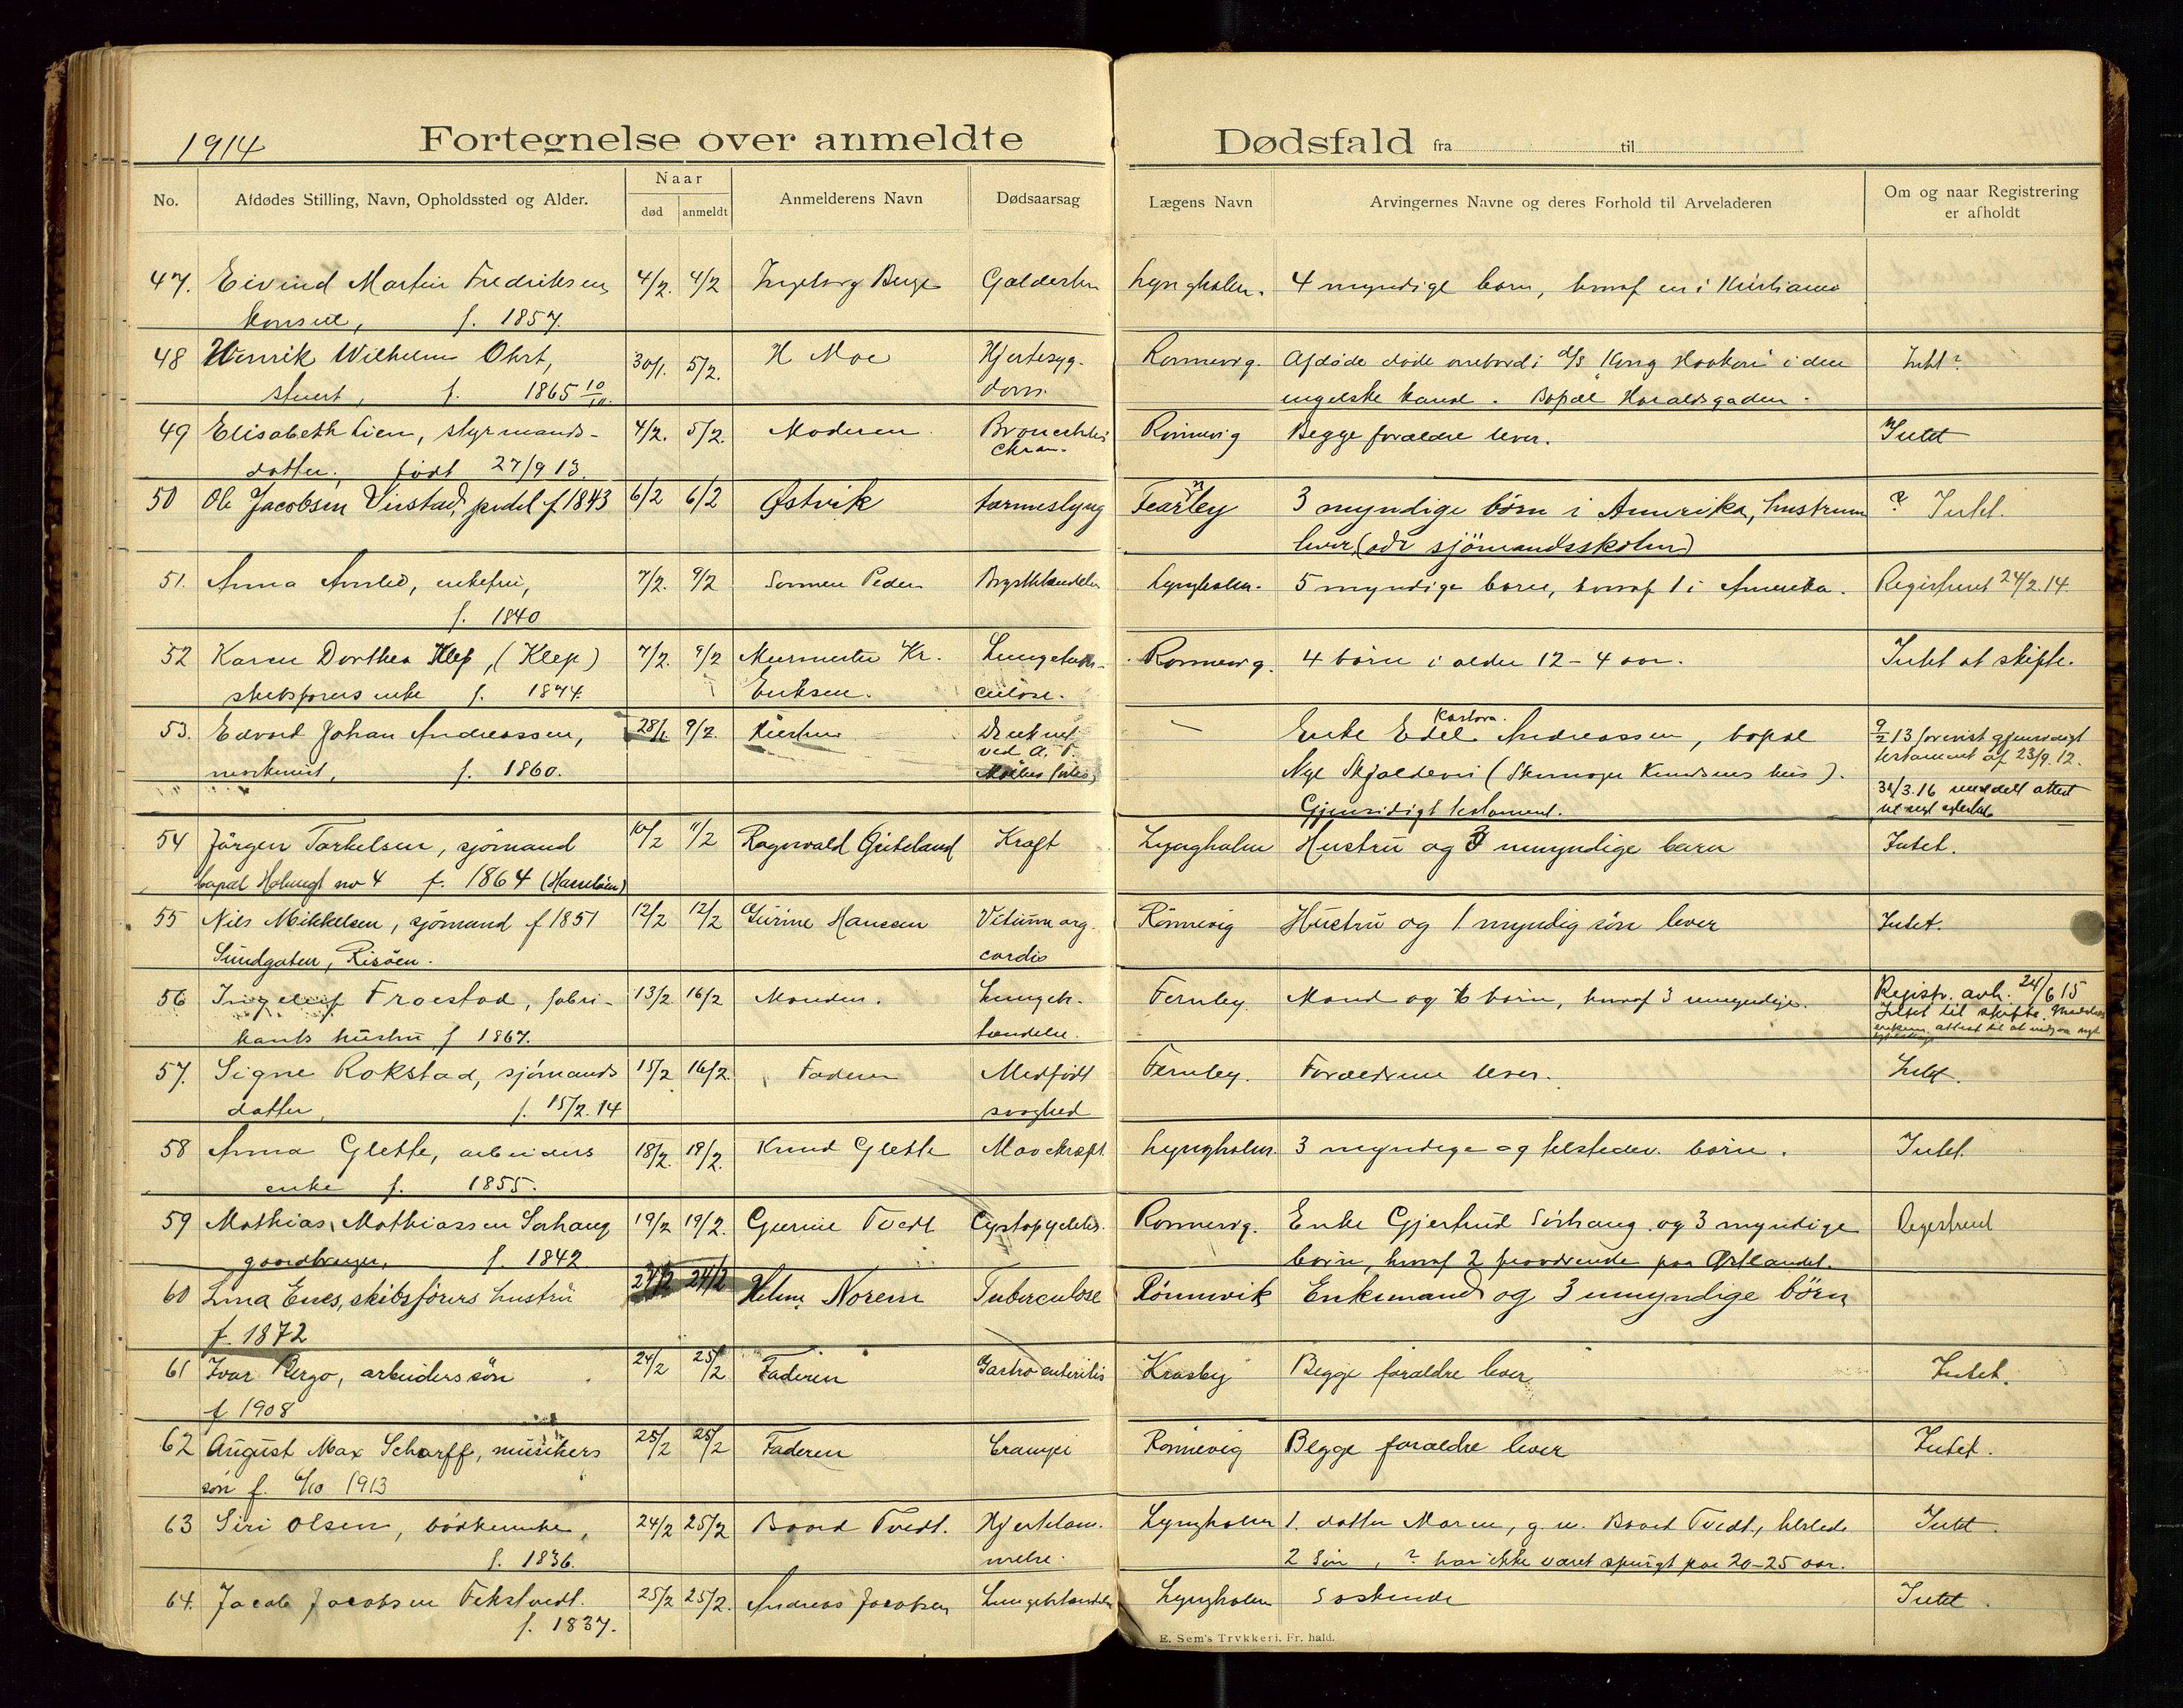 1914
Fortegnelse over anmeldte Dødsfald fra til
No. Afdødes Stilling, Navn, Opholdssted og Alder. Naar død anmeldt Anmelderens Navn Dødsaarsag Lægens Navn Arvingernes Navne og deres Forhold til Arveladeren Om og naar Registrering er afholdt
47. Eivind Martin Fredriksen, 4/2. 4/2 Ingeborg Galdesten Lyngholm. 4 myndige born, hvoraf en i Kristiania
konsul, f. 1857.
48 Henrik Wilhelm Ohrt, 30/1. 5/2. H Moe Hjertesyg- Ronnevig. Afdøde døde ombord i d/s "Kong Haakon" i den Intet?
stuert, f. 1865 10/10. dom. engelske kanal. Bopæl Haraldsgaden.
49 Elisabeth Lien, styrmands- 4/2. 5/2. Moderen Bronchitis Ronnevig Begge forældre lever. Intet
datter. født 27/9 13. chron.
50 Ole Jacobsen Virstad, pedel f 1843 6/2 6/2 Østvik tarmeslyng Fearnley 3 myndige børn i Amerika, hustruen ? Intet.
lever, (adr sjömandsskolen)
51. Anna Amlie, enkefru, 7/2. 9/2 Sonnen Peder Brystbetændelse Lyngholm. 5 myndige born, hvoraf 1 i Amerika. Registreret 24/2.14.
f. 1840
52 Karen Dorthea Klep, (Klep) 7/2. 9/2 Murmester Kr. Lungetuber- Ronnevig. 4 börn i alder 12-4 aar. Intet at skifte.
skibsförers enke f. 1874. Eriksen. culose.
53. Edvard Johan Andreassen, 28/1 9/2. Druknet — Enke Edel Karlova Andreassen, bopæl 9/2 13 forevist gjensidigt
maskinist, f. 1860. ved A. P. Nye Skjoldevei (Skomager Knudsens hus). testament af 23/9.12.
Gjensidigt testament. 31/3.16 meddelt attest
54 Jörgen Torkelsen, sjömand 10/2 11/2 Ragnvald Griteland Kræft Lyngholm Hustru og 3 umyndige barn Intet.
bopæl no 4 f. 1864 (Hasselöen)
55 Nils Mikkelsen, sjömand f 1851 12/2 12/2 Gurine Hanssen Vitium org. Rönnevig Hustru og 1 myndig sön lever Intet.
Sundgaten, Risöen. cordis
56 Fraestad, fabri- 13/2 16/2 Manden. Lungebe- Fernley Mand og 6 börn, hvoraf 3 umyndige. Registr. avh. 24/6 15
kants hustru f 1867. tændelse. Intet til skifte.
57. Signe Rokstad, sjömands 15/2 16/2. Faderen Medfödt Fernley. Forældrene lever. Intet.
datter, f. 15/2.14 svaghed
58 AnnaGlette, arbeiders 18/2. 19/2. Knud Glette Mavekræft Lyngholm. 3 myndige og tilstedev. börn. Intet.
enke f. 1855.
59 Mathias Mathiassen Sorhaug 19/2 19/2. Gurine Tvedt Cystopyelitis. Ronnevig. Enke Gjertrud Sörhaug og 3 myndige Registreret
gaardbruger, f. 1842 börn, hvoraf 2 fraværende paa Østlandet.
60 Lina Enes, skibsförers hustru 24/2 24/2 Helene Norem Tuberculose Rönnevik Enkemand og 3 umyndige börn
f. 1872
61 Ivar Bergo, arbeiders sön 24/2 25/2 Faderen Gastro enteritis Krosby Begge forældre lever Intet.
f 1908
62 August Max Scharff, musikers 25/2 25/2 Faderen Rönnevig Begge forældre lever Intet.
sön f. 6/10 1913
63 Siri Olsen, bödkerenke, 24/2 25/2 Baard Tvedt. Hjertelam- Lyngholm 1. datter Maren, g.m. Baard Tvedt, tilstede Intet.
f. 1836. melse. 2 Sön, ? har ikke været spurgt paa 20-25 aar.
64. Jacob Jacobsen Fikstvedt. 25/2 25/2. Andreas Jacobsen Lungebetændelse Lyngholm Söskende Intet.
f. 1837.
E. Sem's Trykkeri, Fr. hald.